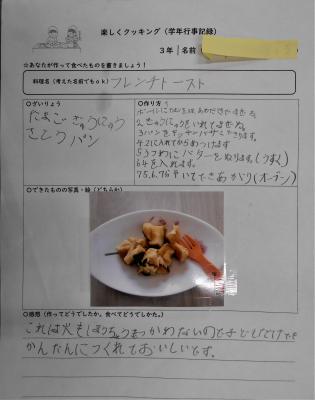 楽しくクッキング（学年行事記録）
3年 名前（
☆あなたが作って食べたものを書きましょう！
料理名（考えた名前でもok） フレンチトースト
○ざいりょう
たまご ぎゅうにゅう
さとう パン
○作り方
2ぎゅうにゅうをいれてまぜる。
3パンをキッチンバサミできります。
4.2に入れてからめつけます
5うつわにバターをぬります。(うすく)
64を入れます。
いてできあがり(オーブン)
○できたものの写真・絵（どちらか）
○感想（作ってどうでしたか。食べてどうでしたか。）
これは火もほうちょうもつかわないので子どもだけでも
かんたんにつくれておいしいです。